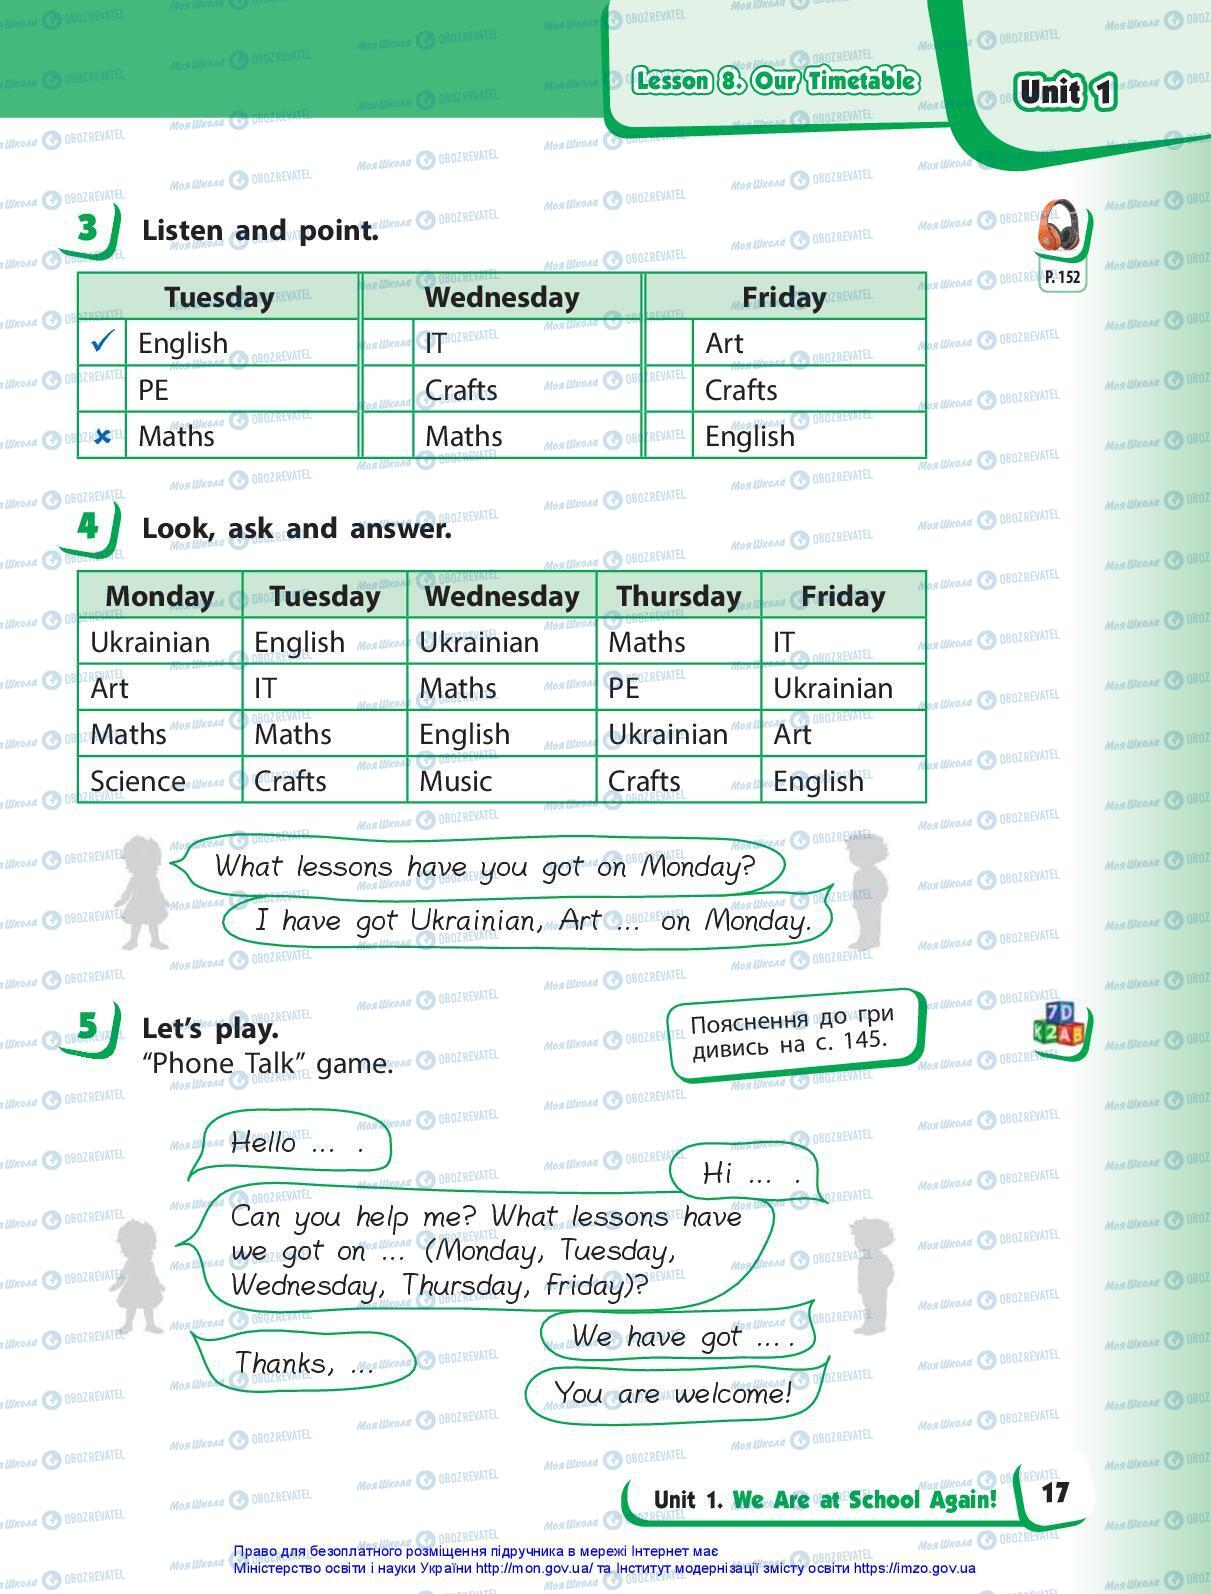 Lesson 8. Our Timetable
Unit 1
3 Listen and point.
P. 152
Tuesday Wednesday Friday
✓ English IT Art
PE Crafts Crafts
✗ Maths Maths English
4 Look, ask and answer.
Monday Tuesday Wednesday Thursday Friday
Ukrainian English Ukrainian Maths IT
Art IT Maths PE Ukrainian
Maths Maths English Ukrainian Art
Science Crafts Music Crafts English
What lessons have you got on Monday?
I have got Ukrainian, Art ... on Monday.
5 Let's play.
“Phone Talk” game.
Пояснення до гри
дивись на с. 145.
7D
KZAB
Hello ... .
Hi ... .
Can you help me? What lessons have
we got on ... (Monday, Tuesday,
Wednesday, Thursday, Friday)?
We have got ... .
Thanks, ...
You are welcome!
Unit 1. We Are at School Again!
17
Право для безоплатного розміщення підручника в мережі Інтернет має
Міністерство освіти і науки України http://mon.gov.ua/ та Інститут модернізації змісту освіти https://imzo.gov.ua
МояШкола OBOZREVATEL